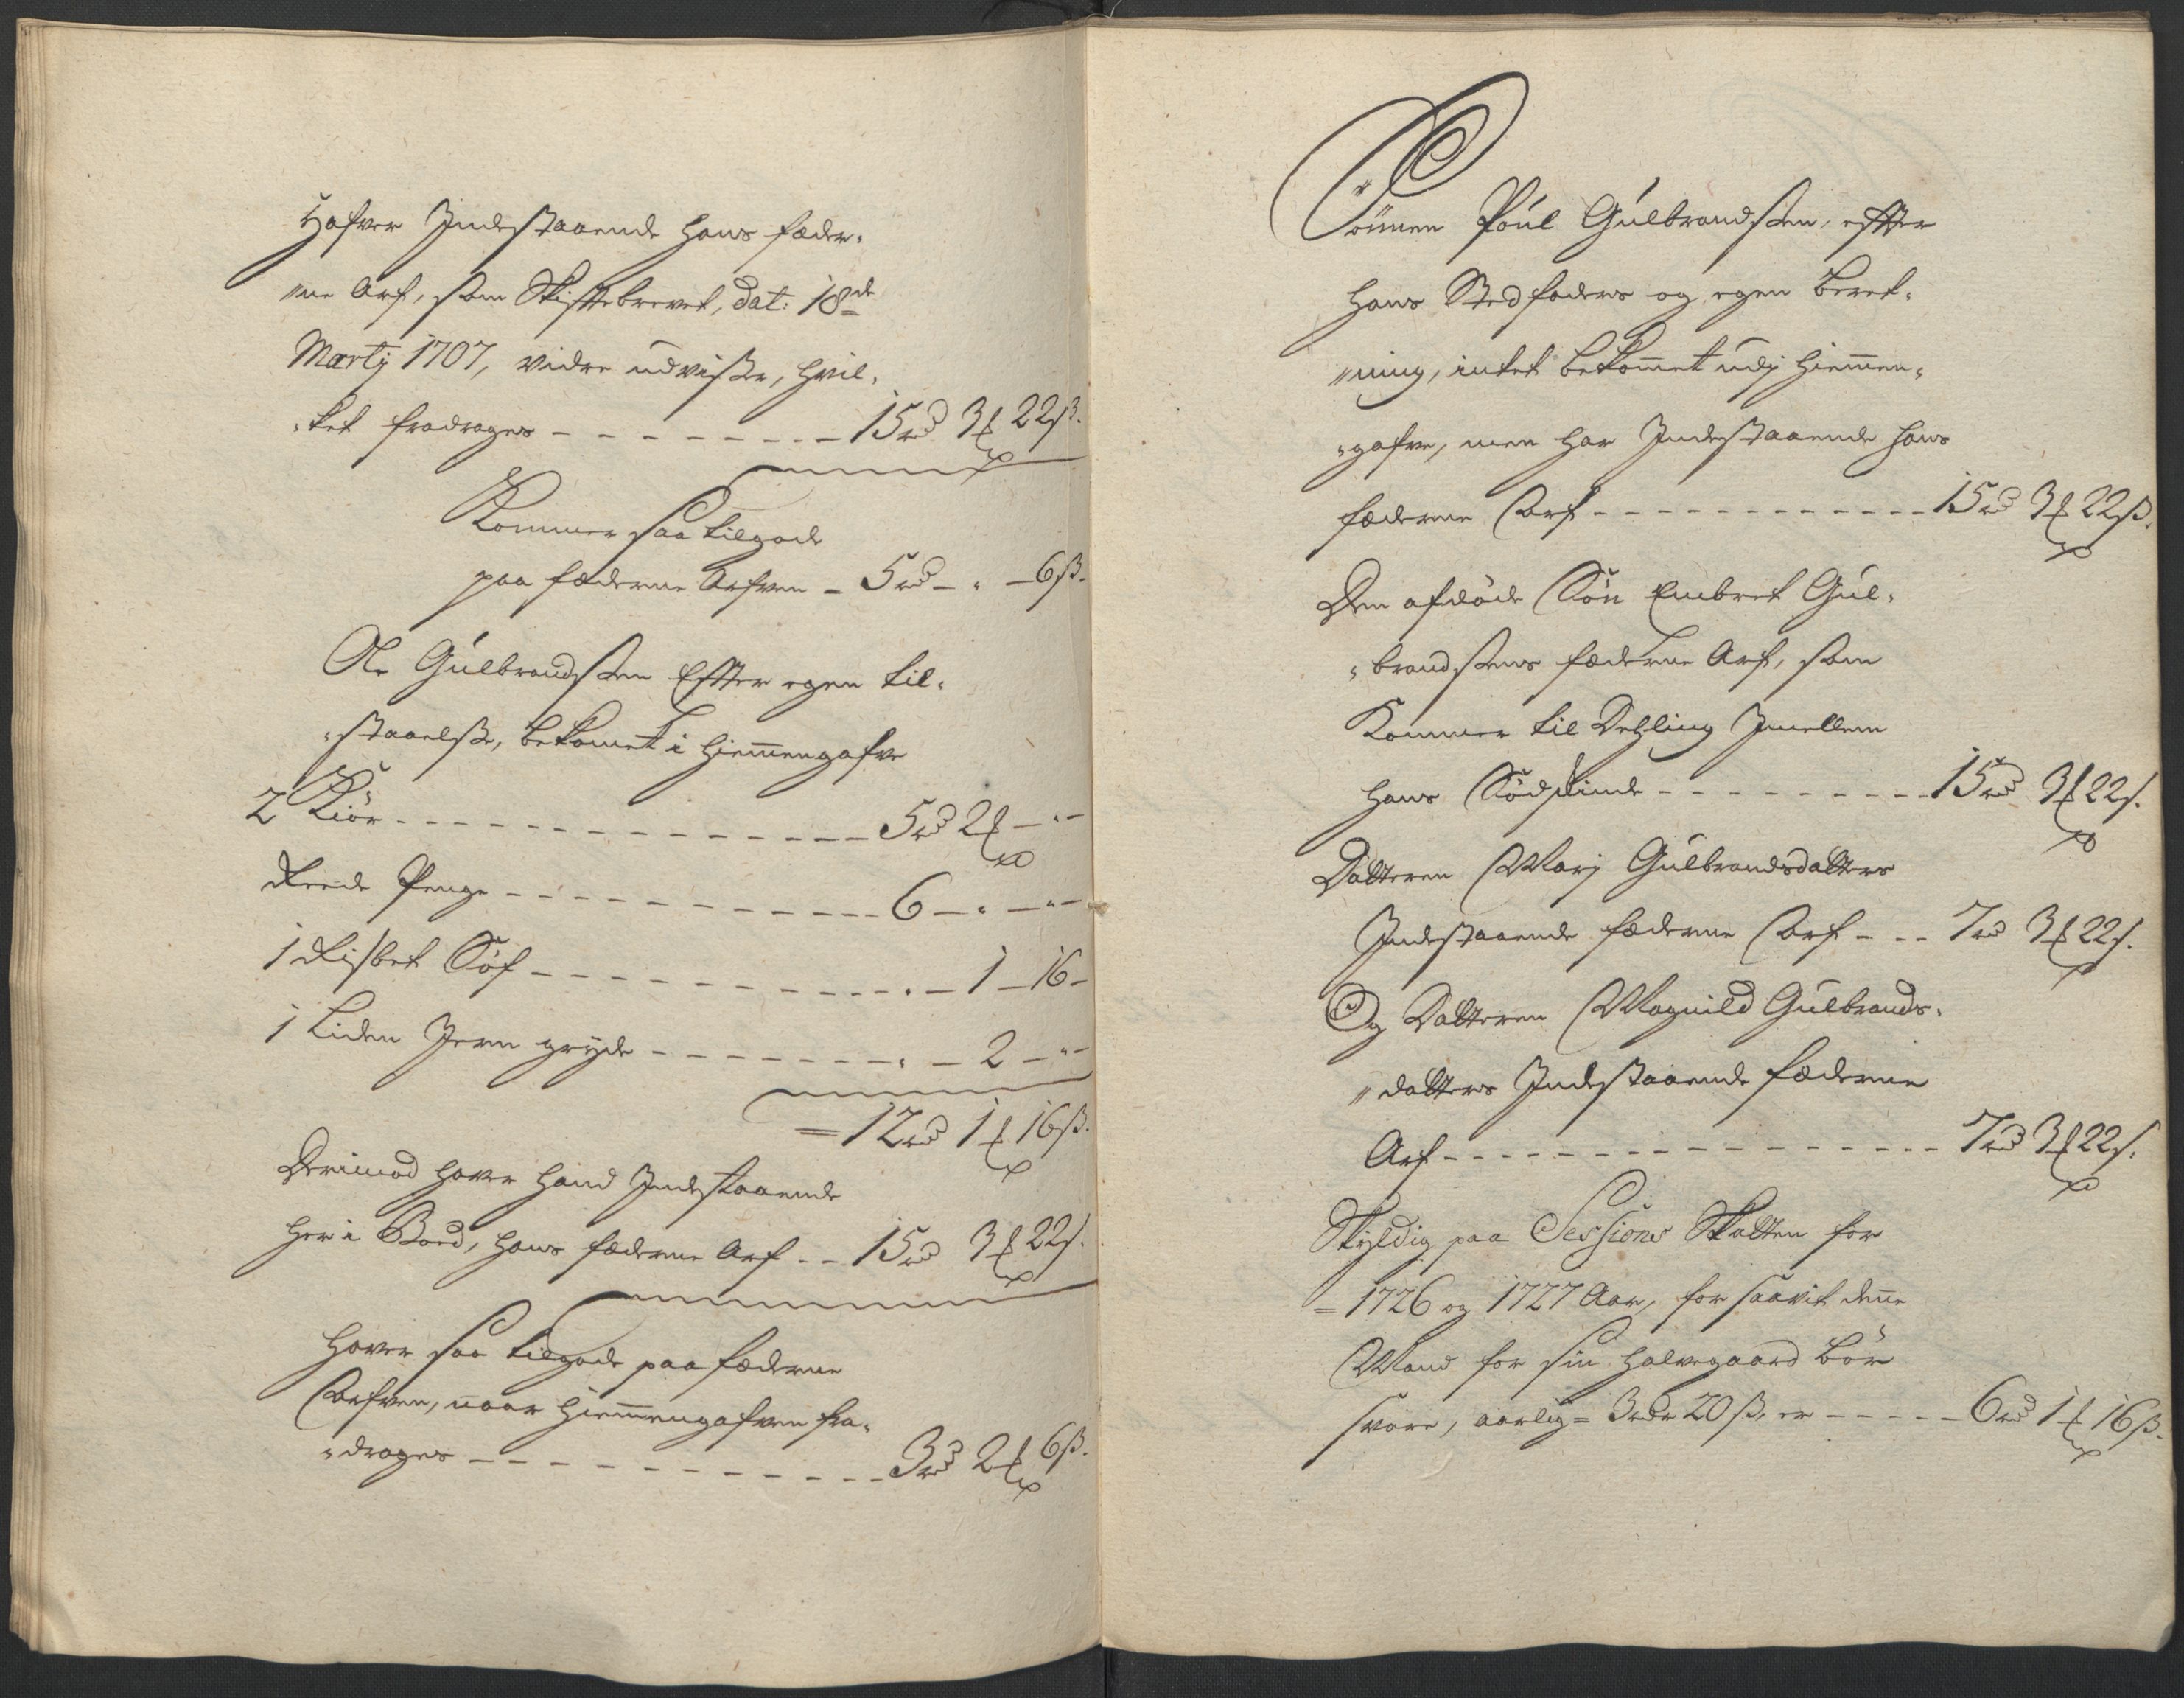 Hafver Indestaaende hans fæder-
"ne Arf, som Skiftebrevet, dat: 18de
Martij 1707, vidre udviser, hvil-
"ket fradrages - - - - - - - - 15rd 3£ 22ß.
Kommer saa tilgode
paa fæderne Arfven - 5rd - " - 6ß.
Ole Gulbrandsen Efter egen til-
"staaelse, bekomet i hiemmengafve
2 Kiør - - - - - - - - - - - - 5rd 2£ - " -
Reede Penge - - - - - - - - - - 6 - " - " -
1 Risbet Søf - - - - - - - - - " - 1 - 16 -
1 Liden Jern gryde - - - - - - - " - 2 - " -
= 12rd 1£ 16ß.
Derimod haver hand Indestaaende
her i Boed, hans fæderne Arf - - 15rd 3£ 22ß.
Haver saa tilgode paa fæderne
Arfven, naar hiemmengafven fra-
"drages - - - - - - - - - - - 3rd 2£ 6ß.
Sönnen Poul Gulbrandsen, efter
hans Stedfaders og egen beret-
"ning, intet bekommet udj hiemmen-
"gafve, men har Indestaaende hans
fæderne Arf - - - - - - - - - - 15rd 3£ 22ß.
Den afdøde Søn Embret Gul-
"brandsens fæderne Arf, som
Kommer til Dehling Imellem
hans Sødskinde - - - - - - - - - 15rd 3£ 22ß.
Datteren Marj Gulbrandsdatters
Indestaaende fæderne Arf - - - 7rd 3£ 22ß.
Og Datteren Magnild Gulbrands-
"datters Indestaaende fæderne
Arf - - - - - - - - - - - - - - 7rd 3£ 22ß.
Skyldig paa Sessions Skatten for
= 1726 og 1727 Aar, for saavit denne
Mand for sin halvegaard bör
svare, aarlig = 3rdr 20ß, er - - - - - 6rd 1£ 16ß.